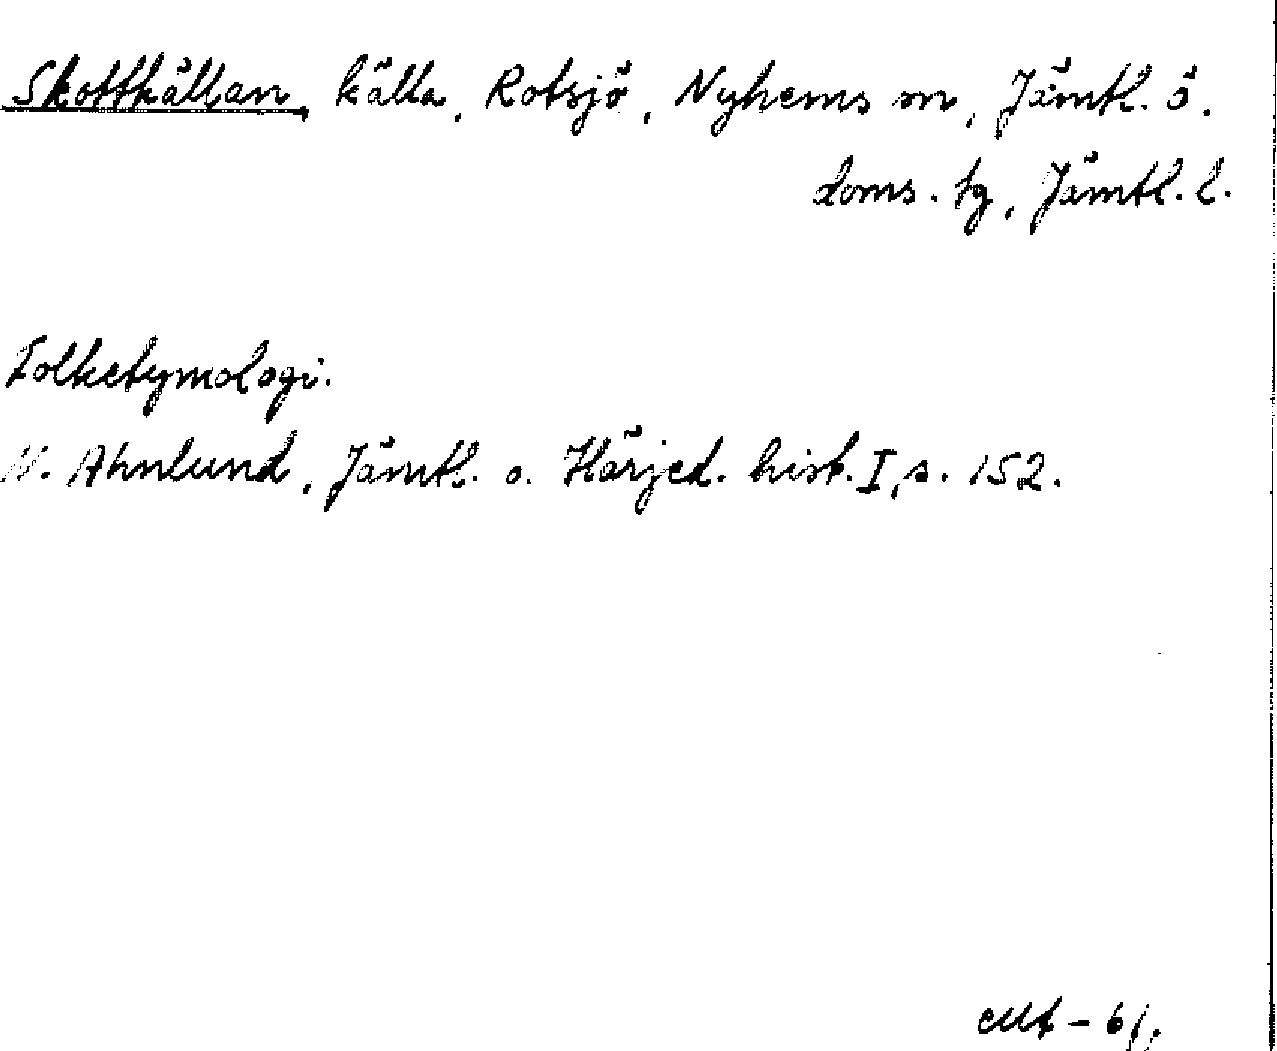 Skottkällan, källa, Rotsjö, Nyhems sn, Jämtl. ö.
doms. tg, Jämtl. l.
Folketymologi.
N. Ahnlund, Jämtl. o. Härjed. hist. I, s. 152.
- 61.